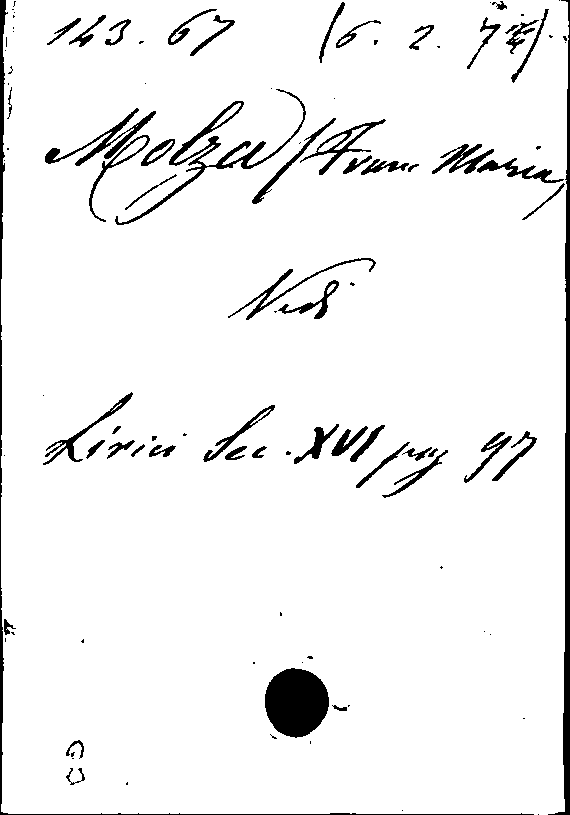 143. 67 (6. 2. 7
Molza (Franc Maria)
Vedi
Lirici Sec. XVI pag 97